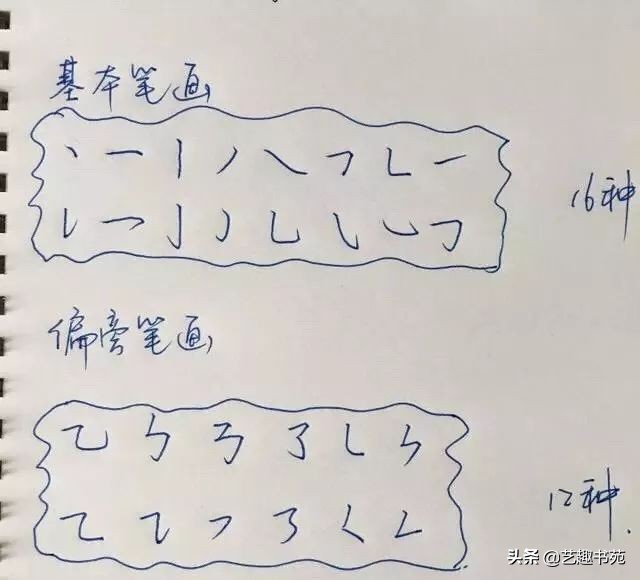 基本笔画
丶 一 丨 丿 ㇏ ㇇ 𠃊 ㇀
𠄌 乛 亅 ㇓ 乚 ㇂ ㇃ 𠃌
16种
偏旁笔画
乙 ㄣ ㄋ 了 乚 ㄣ
12种.
头条 @艺趣书苑